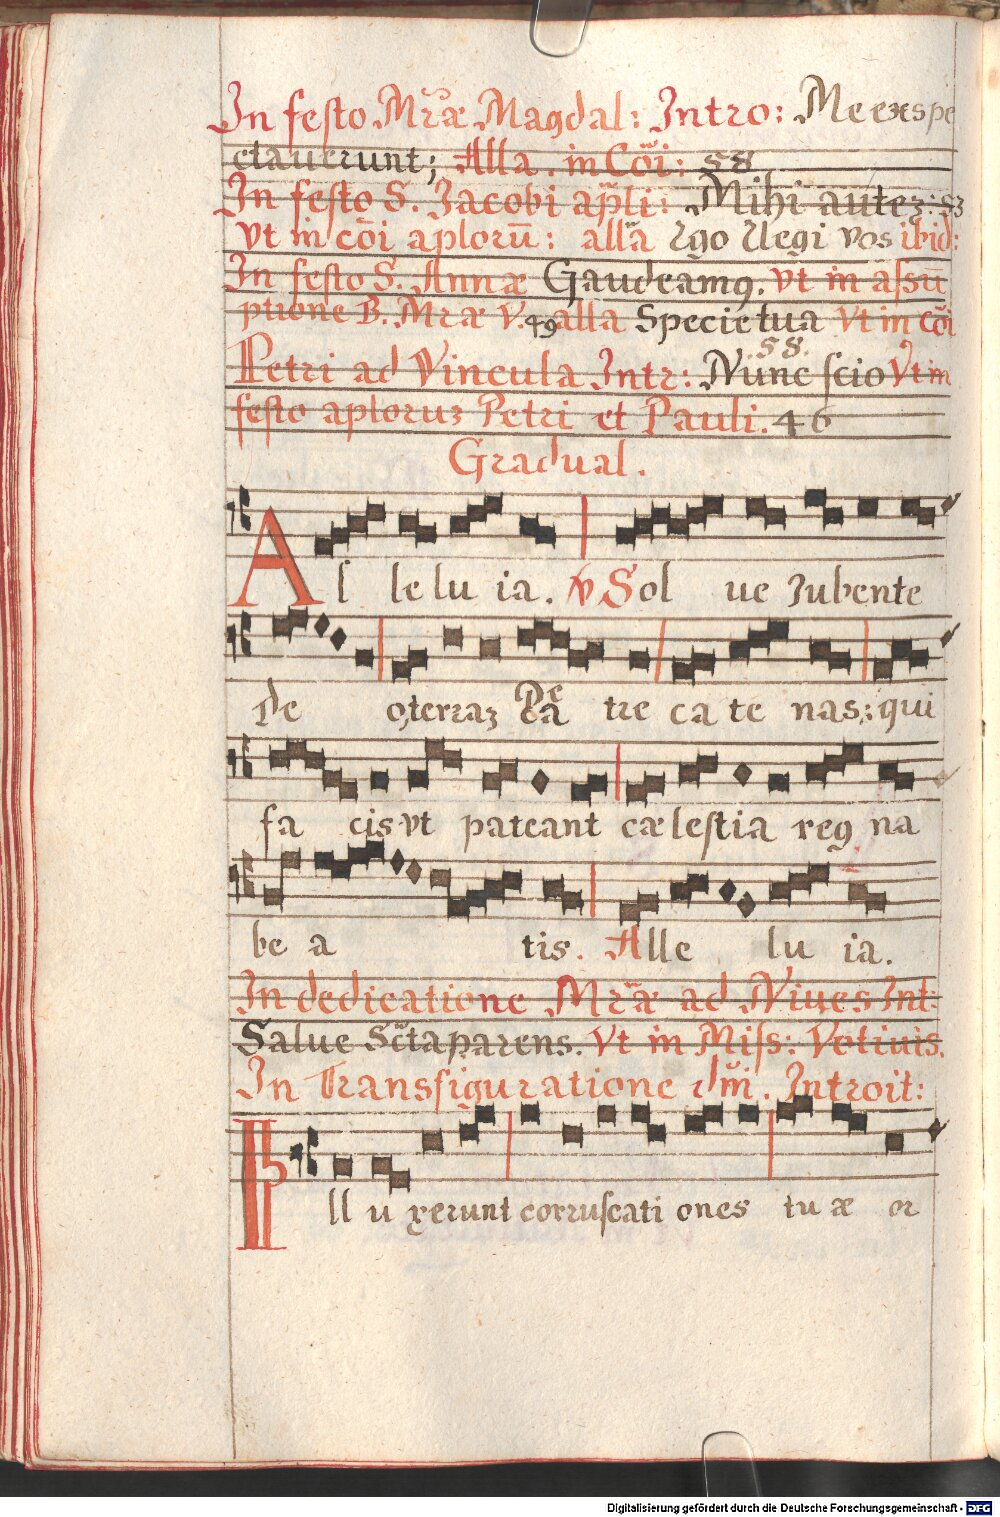 In festo Mr̃æ Magdal: Intro: Me exspe
ctauerunt; Alla. in Cõi: 58
In festo S. Jacobi ap̃li: Mihi autez: 53
vt in cõi aploru̅: alla Ego Elegi vos ibid:
In festo S. Annæ Gaudeamꝯ. vt in assu̅
ptione B. Mræ V. 49 alla Specie tua vt in cõi
58.
Petri ad Vincula Intr: Nunc scio Vt in
festo aploruz Petri et Pauli. 46
Gradual.
Al le lu ia. ℣ Sol ue Iubente
De o, terraz Pe tre ca te nas: qui
fa cis vt pateant cælestia reg na
be a tis. Alle lu ia.
In dedicatione Mr̃æ ad Niues Int:
Salue Sc̃ta parens. Vt in Miss: Votiuis.
In Transfiguratione Dm̃. Introit:
Ill u xerunt corruscati ones tu æ or
Digitalisierung gefördert durch die Deutsche Forschungsgemeinschaft - DFG